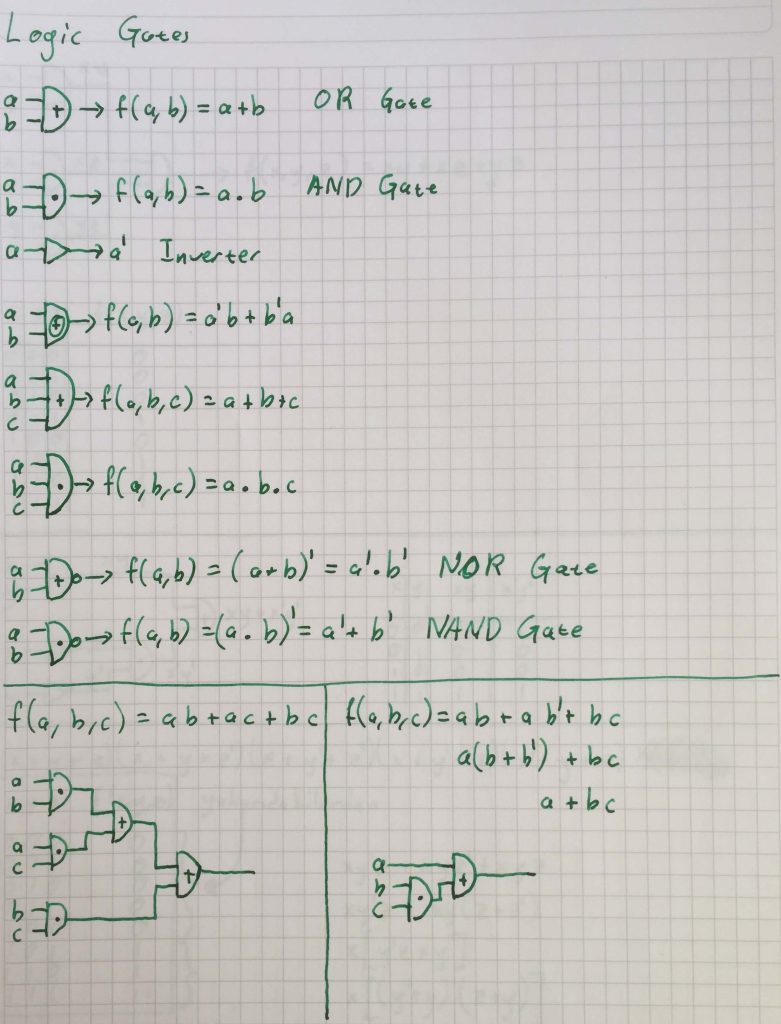 Logic Gates
a b + → f(a,b) = a+b OR Gate
a b . → f(a,b) = a.b AND Gate
a → a' Inverter
a b ⊕ → f(a,b) = a'b + b'a
a b c + → f(a,b,c) = a+b+c
a b c . → f(a,b,c) = a.b.c
a b + → f(a,b) = (a+b)' = a'.b' NOR Gate
a b . → f(a,b) = (a.b)' = a'+b' NAND Gate
f(a,b,c) = ab+ac+bc
a
b .
+
a
c .
+
b
c .
f(a,b,c)=ab+ab'+bc
a(b+b') +bc
a+bc
a
b +
c .